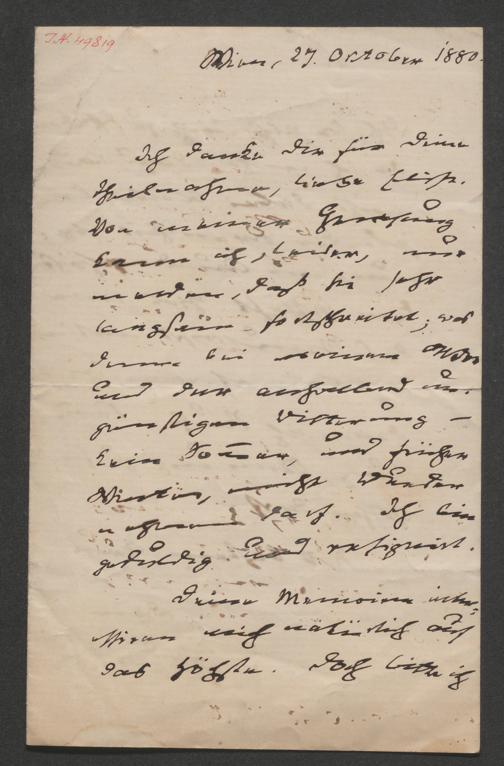 I.N. 49819
Wien, 27. October 1880.
Ich danke Dir für Deine
Theilnahme, liebe
Von meiner Genesung
kann ich, leider, nur
melden, daß sie sehr
langsam fortschreitet; was
denn bei meinem Alter
und der anhaltend un-
günstigen Witterung –
kein Sommer, und früher
Winter, nicht Wunder
nehmen darf. Ich bin
geduldig und resignirt.
Deine Memoiren inter-
essiren mich natürlich auf
das höchste. Doch bitte ich